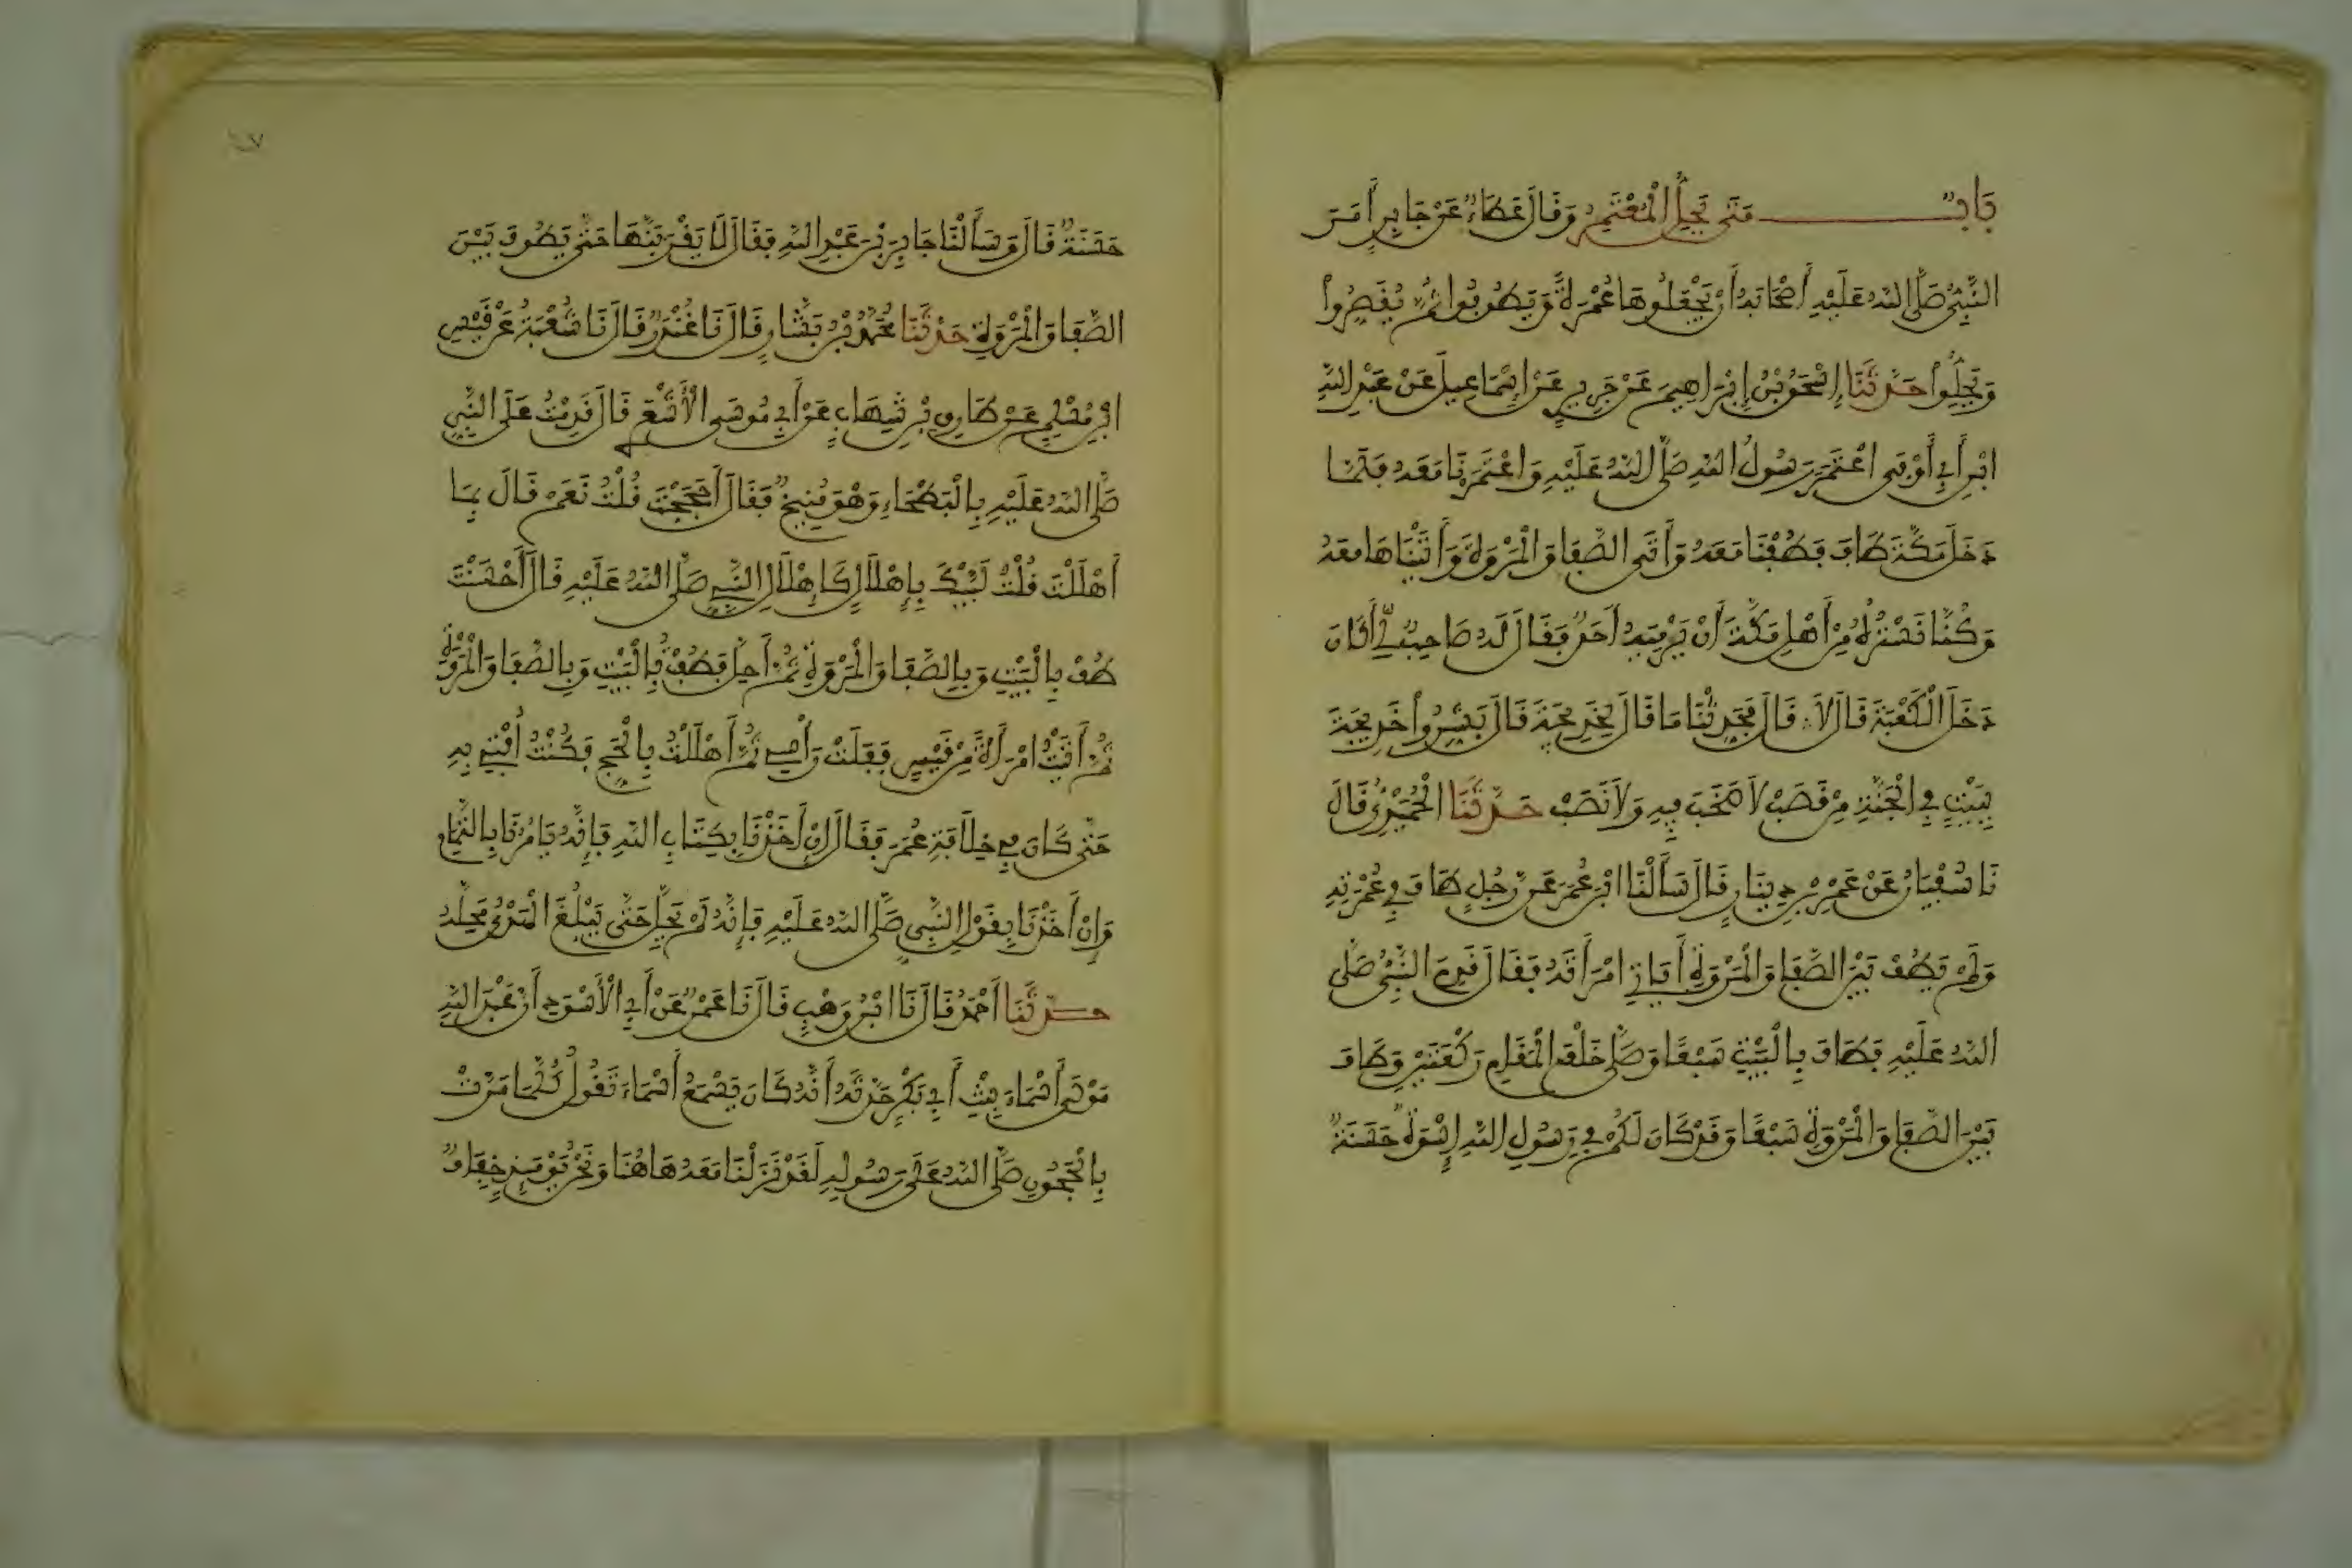 بَابٌ مَتَى يَحِلُّ الْمُعْتَمِرُ وَقَالَ عَطَاءٌ عَنْ جَابِرٍ أَمَرَ
النَّبِيُّ صَلَّى اللهُ عَلَيْهِ أَصْحَابَهُ أَنْ يَجْعَلُوهَا عُمْرَةً وَيَطُوفُوا ثُمَّ يُقَصِّرُوا
وَيَحِلُّوا حَدَّثَنَا إِسْحَقُ بْنُ إِبْرَاهِيمَ عَنْ جَرِيرٍ عَنْ إِسْمَاعِيلَ عَنْ عَبْدِ اللهِ
ابْنِ أَبِي أَوْفَى اعْتَمَرَ رَسُولُ اللهِ صَلَّى اللهُ عَلَيْهِ وَاعْتَمَرْنَا مَعَهُ فَلَمَّا
دَخَلَ مَكَّةَ طَافَ فَطُفْنَا مَعَهُ وَأَتَى الصَّفَا وَالْمَرْوَةَ وَأَتَيْنَاهَا مَعَهُ
وَكُنَّا نَسْتُرُهُ مِنْ أَهْلِ مَكَّةَ أَنْ يَرْمِيَهُ أَحَدٌ فَقَالَ لَهُ صَاحِبٌ لِي أَكَانَ
دَخَلَ الْكَعْبَةَ قَالَ لَا قَالَ فَحَدِّثْنَا مَا قَالَ لِخَدِيجَةَ قَالَ بَشِّرُوا خَدِيجَةَ
بِبَيْتٍ فِي الْجَنَّةِ مِنْ قَصَبٍ لَا صَخَبَ فِيهِ وَلَا نَصَبَ حَدَّثَنَا الْحُمَيْدِيُّ قَالَ
نَا سُفْيَانُ عَنْ عَمْرِو بْنِ دِينَارٍ قَالَ سَأَلْنَا ابْنَ عُمَرَ عَنْ رَجُلٍ طَافَ فِي عُمْرَتِهِ
وَلَمْ يَطُفْ بَيْنَ الصَّفَا وَالْمَرْوَةِ أَيَأْتِي امْرَأَتَهُ فَقَالَ قَدِمَ النَّبِيُّ صَلَّى
اللهُ عَلَيْهِ فَطَافَ بِالْبَيْتِ سَبْعًا وَصَلَّى خَلْفَ الْمَقَامِ رَكْعَتَيْنِ وَطَافَ
بَيْنَ الصَّفَا وَالْمَرْوَةِ سَبْعًا وَقَدْ كَانَ لَكُمْ فِي رَسُولِ اللهِ إِسْوَةٌ حَسَنَةٌ
حَسَنَةٌ قَالَ وَسَأَلْنَا جَابِرَ بْنَ عَبْدِ اللهِ فَقَالَ لَا يَقْرَبَنَّهَا حَتَّى يَطُوفَ بَيْنَ
الصَّفَا وَالْمَرْوَةِ حَدَّثَنَا مُحَمَّدُ بْنُ بَشَّارٍ قَالَ نَا غُنْدَرٌ قَالَ نَا شُعْبَةُ عَنْ قَيْسِ
ابْنِ مُسْلِمٍ عَنْ طَارِقِ بْنِ شِهَابٍ عَنْ أَبِي مُوسَى الْأَشْعَرِي قَالَ قَدِمْتُ عَلَى النَّبِيِّ
صَلَّى اللهُ عَلَيْهِ بِالْبَطْحَاءِ وَهْوَ مُنِيخٌ فَقَالَ أَحَجَجْتَ قُلْتُ نَعَمْ قَالَ بِمَا
أَهْلَلْتَ قُلْتُ لَبَّيْكَ بِإِهْلَالٍ كَإِهْلَالِ النَّبِيِّ صَلَّى اللهُ عَلَيْهِ قَالَ أَحْسَنْتَ
طُفْ بِالْبَيْتِ وَبِالصَّفَا وَالْمَرْوَةِ ثُمَّ أَحِلَّ فَطُفْتُ بِالْبَيْتِ وَبِالصَّفَا وَالْمَرْوَةِ
ثُمَّ أَتَيْتُ امْرَأَةً مِنْ قَيْسٍ فَفَلَتْ رَأْسِي ثُمَّ أَهْلَلْتُ بِالْحَجِّ فَكُنْتُ أُفْتِي بِهِ
حَتَّى كَانَ فِي خِلَافَةِ عُمَرَ فَقَالَ إِنْ أَخَذْنَا بِكِتَابِ اللهِ فَإِنَّهُ يَأْمُرُنَا بِالتَّمَامِ
وَإِنْ أَخَذْنَا بِقَوْلِ النَّبِيِّ صَلَّى اللهُ عَلَيْهِ فَإِنَّهُ لَمْ يَحِلَّ حَتَّى يَبْلُغَ الْهَدْيُ مَحِلَّهُ
حَدَّثَنَا أَحْمَدُ قَالَ نَا ابْنُ وَهْبٍ قَالَ نَا عَمْرٌو عَنْ أَبِي الْأَسْوَدِ أَنَّ عَبْدَ اللهِ
مَوْلَى أَسْمَاءَ بِنْتِ أَبِي بَكْرٍ حَدَّثَهُ أَنَّهُ كَانَ يَسْمَعُ أَسْمَاءَ تَقُولُ كُلَّمَا مَرَّتْ
بِالْحَجُونِ صَلَّى اللهُ عَلَى رَسُولِهِ لَقَدْ نَزَلْنَا مَعَهُ هَاهُنَا وَنَحْنُ يَوْمَئِذٍ خِفَافٌ